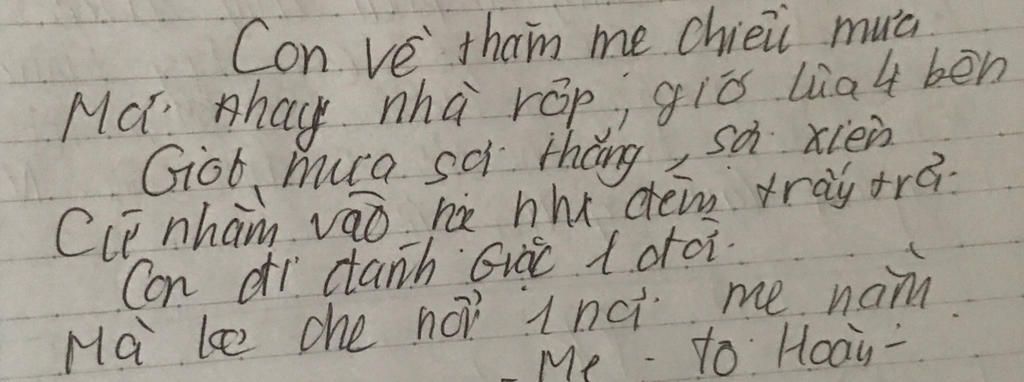 Con về thăm mẹ chiều mưa
Mới hay nhà rộp, gió lùa 4 bên
Giọt mưa sợi thẳng, sợi xiên
Cứ nhằm vào mẹ như đêm trảy trở.
Con đi đánh Giặc 1 đời
Mà ko che nổi 1 nơi mẹ nằm.
- Mẹ - Tô Hoàn -